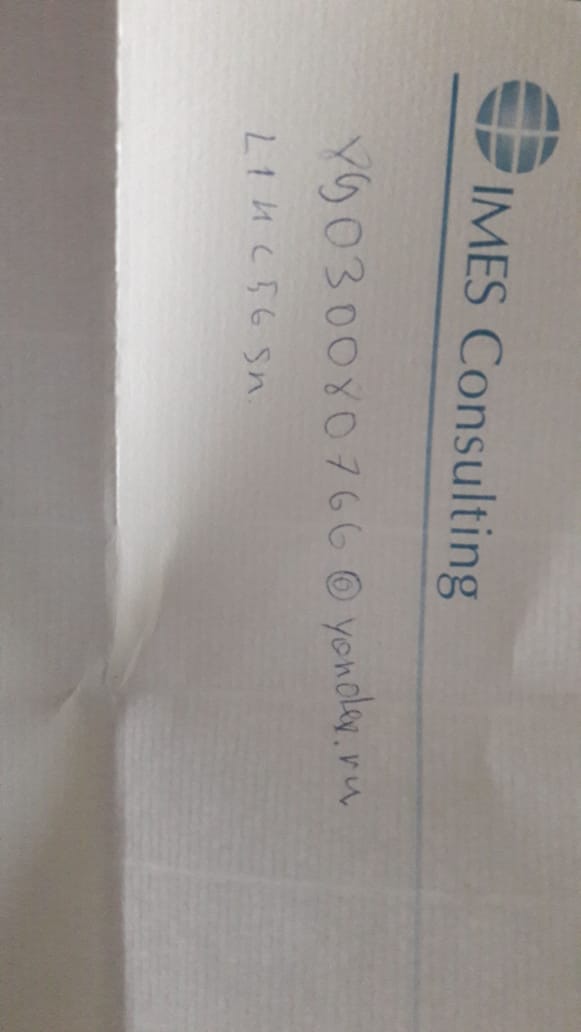 IMES Consulting
89030080766@yandex.ru